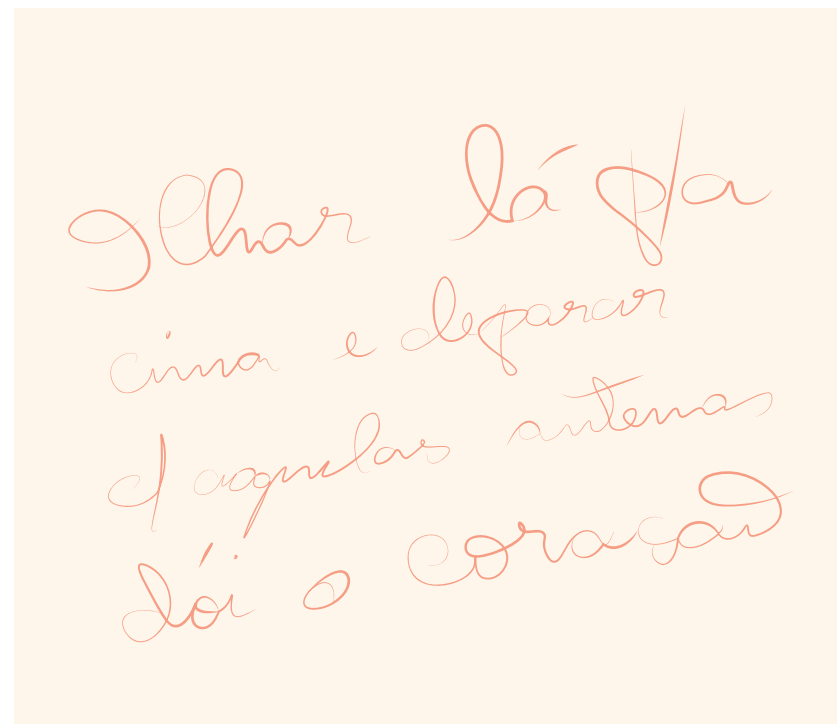 Olhar lá p/a
cima e deparar
c/ aquelas antenas
dói o coração